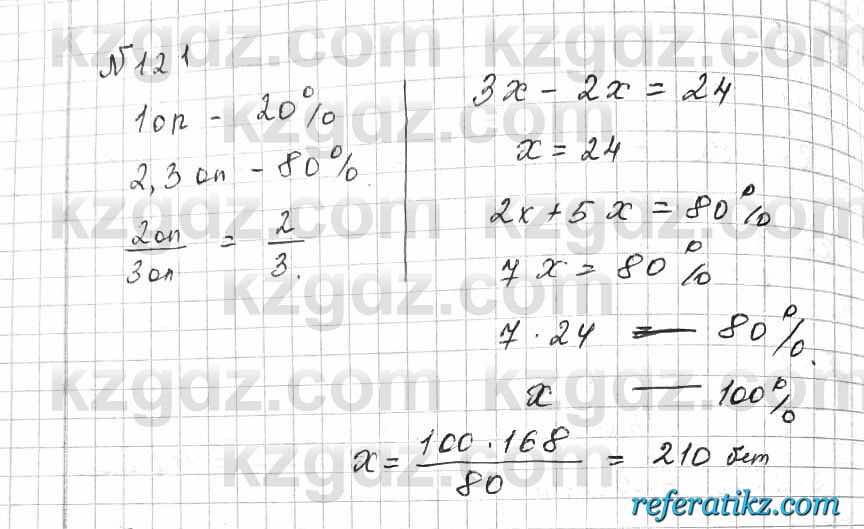 № 121
1 оп - 20%
2,3 оп - 80%
2оп/3оп = 2/3.
3x - 2x = 24
x = 24
2x + 5x = 80%
7x = 80%
7 · 24 — 80%.
x — 100%
x = (100 · 168)/80 = 210 бет
kzgdz.com
referatikz.com